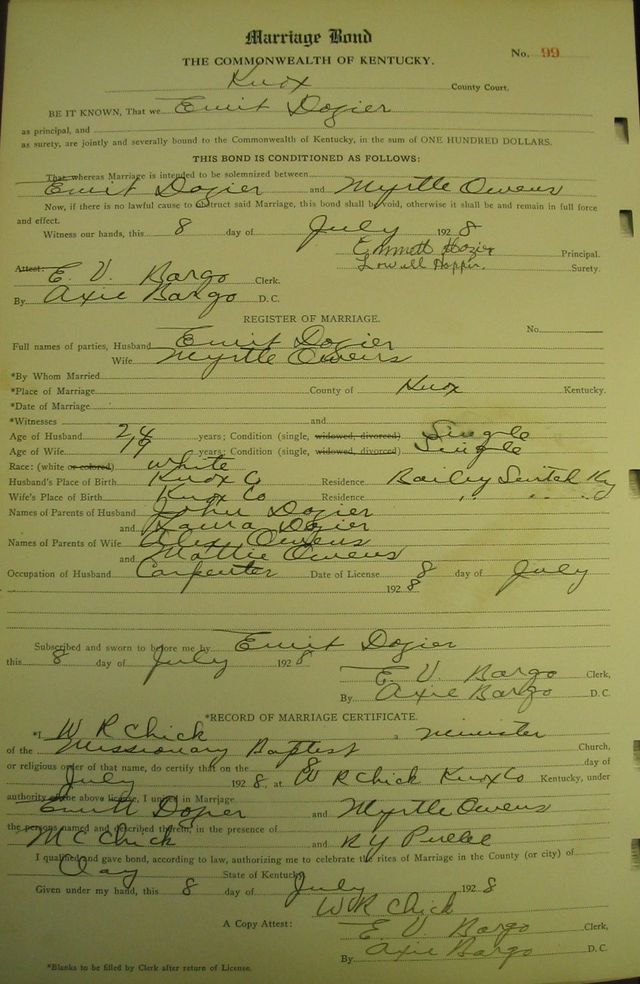 Marriage Bond
THE COMMONWEALTH OF KENTUCKY. No. 99
Knox County Court.
BE IT KNOWN, That we Emit Dozier
as principal, and
as surety, are jointly and severally bound to the Commonwealth of Kentucky, in the sum of ONE HUNDRED DOLLARS.
THIS BOND IS CONDITIONED AS FOLLOWS:
That, whereas Marriage is intended to be solemnized between
Emit Dozier and Myrtle Owens
Now, if there is no lawful cause to obstruct said Marriage, this bond shall be void, otherwise it shall be and remain in full force
and effect.
Witness our hands, this 8 day of July 1928
Emmett Dozier Principal.
Lowell Hopper. Surety.
Attest: E. V. Bargo Clerk.
By Axie Bargo D. C.
REGISTER OF MARRIAGE.
No.
Full names of parties, Husband Emit Dozier
Wife Myrtle Owens
*By Whom Married
*Place of Marriage County of Knox Kentucky.
*Date of Marriage
*Witnesses and
Age of Husband 24 years; Condition (single, widowed, divorced) Single
Age of Wife 19 years; Condition (single, widowed, divorced) Single
Race: (white or colored) white
Husband's Place of Birth Knox Co Residence Bailey Ky
Wife's Place of Birth Knox Co Residence " " "
Names of Parents of Husband John Dozier
and Laura Dozier
Names of Parents of Wife Owens
and Mattie Owens
Occupation of Husband Carpenter Date of License 8 day of July
1928
Subscribed and sworn to before me by Emit Dozier
this 8 day of July 1928
E. V. Bargo Clerk,
By Axie Bargo D. C.
*RECORD OF MARRIAGE CERTIFICATE.
*I W R Chick a minister
of the Missionary Baptest Church,
or religious order of that name, do certify that on the 8 day of
July 1928, at W R Chick Knox Co Kentucky, under
authority of the above license, I united in Marriage
Emitt Dozier and Myrtle Owens
the persons named and described therein, in the presence of
M C Chick and R Y
I qualified and gave bond, according to law, authorizing me to celebrate the rites of Marriage in the County (or city) of
Clay State of Kentucky.
Given under my hand, this 8 day of July 1928
W R Chick
A Copy Attest: E. V. Bargo Clerk,
By Axie Bargo D. C.
*Blanks to be filled by Clerk after return of License.